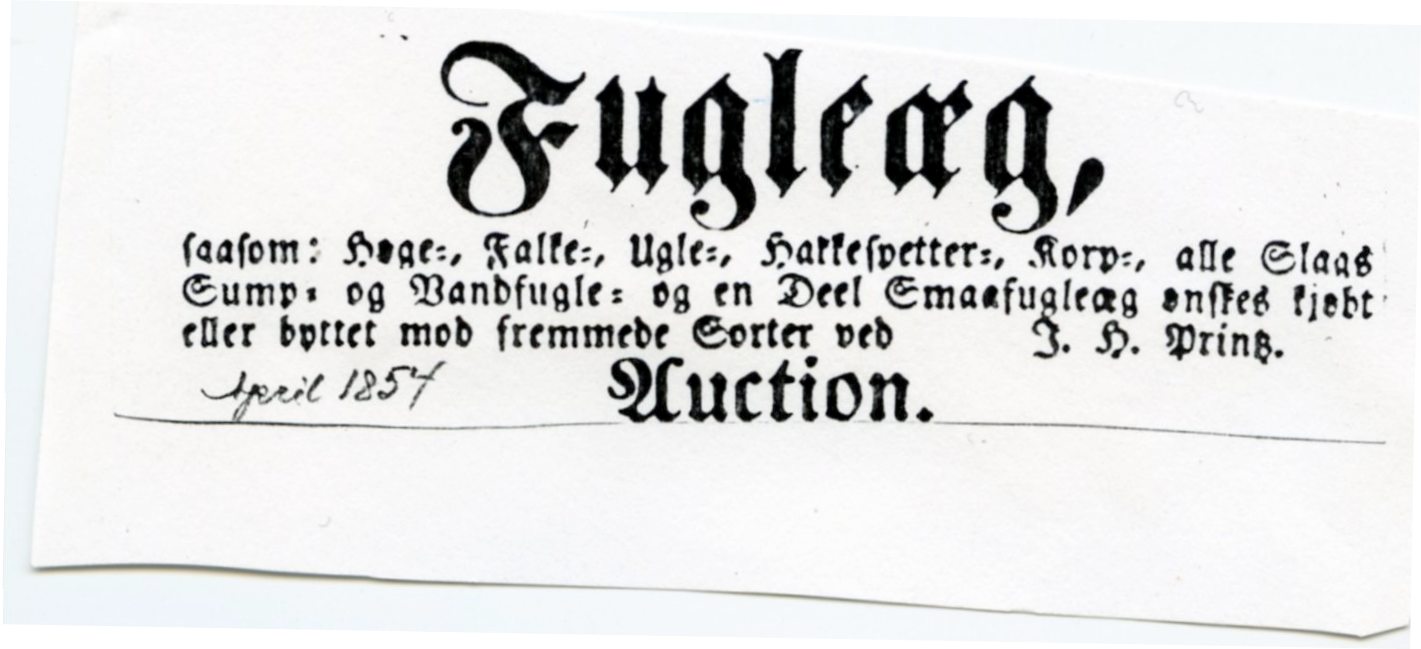 Fugleæg,
saasom: Høge-, Falke-, Ugle-, Hakkespetter-, Korp-, alle Slags
Sump- og Vandfugle- og en Deel Smaafugleæg ønskes kjøbt
eller byttet mod fremmede Sorter ved J. H. Printz.
April 1854
Auction.